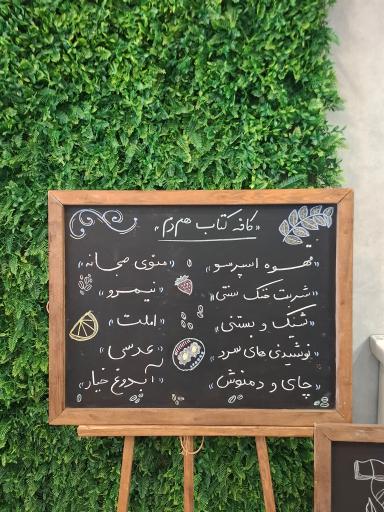 «کافه کتاب همدم»
«قهوه اسپرسو»
«شربت خنک سنتی»
«شیک و بستنی»
«نوشیدنی های سرد»
«چای و دمنوش»
«منوی صبحانه»
«نیمرو»
«املت»
«عدسی»
«آبدوغ خیار»